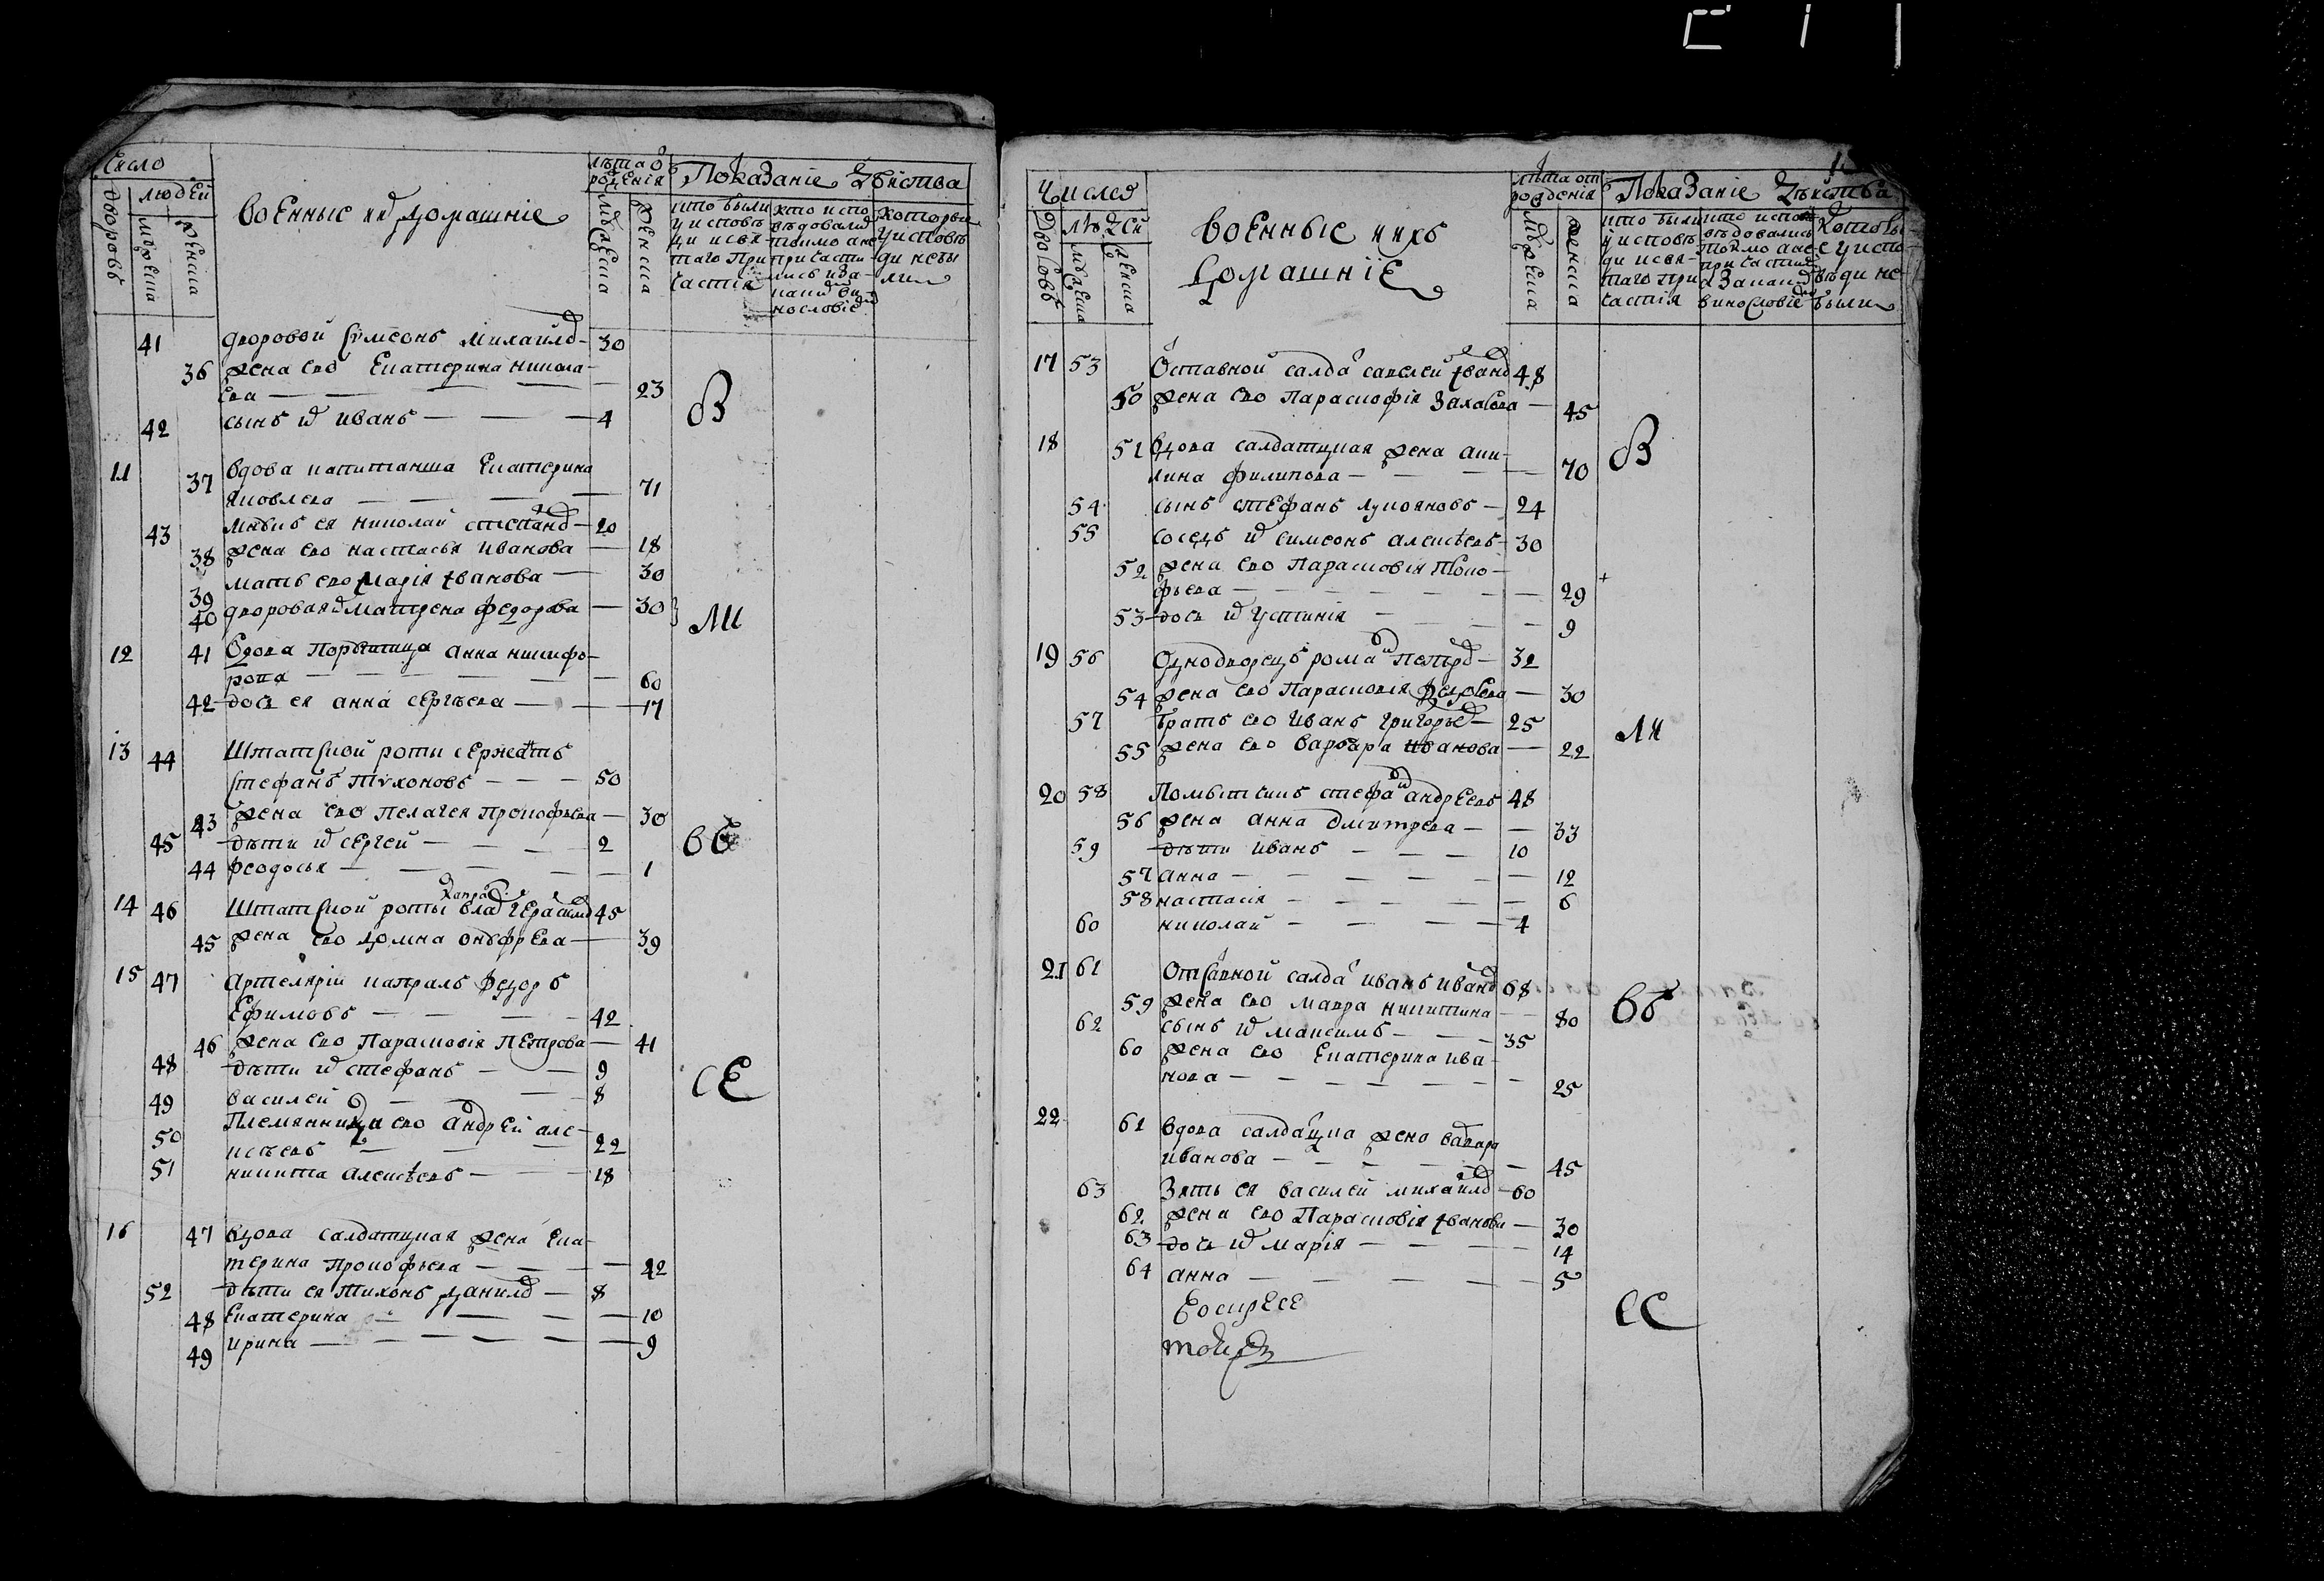 Число
людей
дворовъ
мужеска
женска
военные ихъ домашніе
лѣта ѿ рожденія
мужеска
женска
Показаніе дѣйства
кто были
у исповѣ
ди и свя
таго При
частія
кто испо
вѣдовали
токмо а не
причасти
лись и за
каким ви
нословіемъ
которые
у исповѣ
ди не бы
ли
41 дворовой Сѵмеонъ Михаилов 30
36 жена ево Екатерина Никола
ева 23
42 сынъ ѿ Иванъ 4
В
11 37 вдова капитанша Екатерина
Яковлева 71
43 ея Николай Степанов 20
38 жена ево Настасья Иванова 18
39 мать ево Марія Іванова 30
40 дворовая Матрена Федорова 30
ли
12 41 Вдова Порутчица Анна Никифо
рова 60
42 дочь ея Анна Сергѣева 17
13 44 Штатской роты сержантъ
Стефанъ Тѵхоновъ 50
43 жена ево Пелагея Прокофьева 30
45 дѣти ѿ Сергей 2
44 Феодосья 1
вб
14 46 Штатской роты капра Влас Герасимов 45
45 жена ево Домна Онуфрева 39
15 47 Артелеріи капралъ Федоръ
Ефимовъ 42
46 жена ево Парасковія Петрова 41
48 дѣти ѿ Стефанъ 9
49 Василей 8
СЕ
Племянники ево Андрей Але
50 ксѣевъ 22
51 Никита Алексѣевъ 18
16 47 вдова салдатцкая жена Ека
терина Прокофьева 42
52 дѣти ея Тихонъ Данилов 8
48 Екатерина 10
49 Ирина 9
Числа
людей
дворовъ
мужеска
женска
военные ихъ
домашніе
лѣта от рожденія
мужеска
женска
Показаніе дѣйства
кто были
у исповѣ
ди и свя
таго при
частія
кто испо
вѣдовались
токмо а не
причастил
а за каким
винословіе
которы
е у испо
вѣди не
были
17 53 Отставной салдат Савелей Іванов 48
50 жена ево Парасковія Захарова 45
18 51 вдова салдатцкая жена Аки
лина Филипова 70
В
54 сынъ Стефанъ Лукояновъ 24
55 соседъ ѿ Симеонъ Алексѣевъ 30
52 жена ево Парасковія Проко
фьева 29
53 дочь ѿ Устинія 9
19 56 Однодворецъ Роман Петров 32
54 жена ево Парасковія Федорова 30
57 братъ ево Иванъ Григорьев 25
55 жена ево Варвара Иванова 22
ли
20 58 Помѣщикъ Стефан Андреевъ 48
56 жена Анна Дмитрева 33
59 дѣти Иванъ 10
57 Анна 12
58 Настасія 6
60 Николай 4
21 61 Отставной салдат Иванъ Иванов 68
59 жена ево Мавра Никитина 80
62 сынъ ѿ Максимъ 35
60 жена ево Екатерина Ива
нова 25
вб
22 61 вдова салдацка жена Варвара
Иванова 45
63 Зять ея Василей Михаилов 60
62 жена ево Парасковія Іванова 30
63 дочь ѿ Марія 14
64 Анна 5
СС